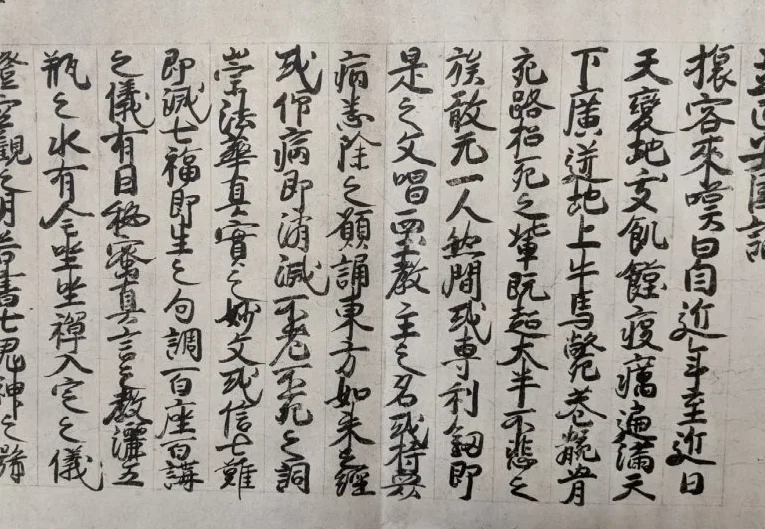 立正安国論
旅客來嘆曰自近年至近日
天變地夭飢饉疫癘遍滿天
下廣迸地上牛馬斃巷骸骨
充路招死之輩既超大半不悲之
族敢无一人然間或専利釼即
是之文唱西土教主之名或持衆
病悉除之願誦東方如来之經
或仰病即消滅不老不死之詞
崇法華真實之妙文或信七難
即滅七福即生之句調百座百講
之儀有因秘密真言之教灑五
瓶之水有全坐禪入定之儀
澄空觀之月若書七鬼神之號